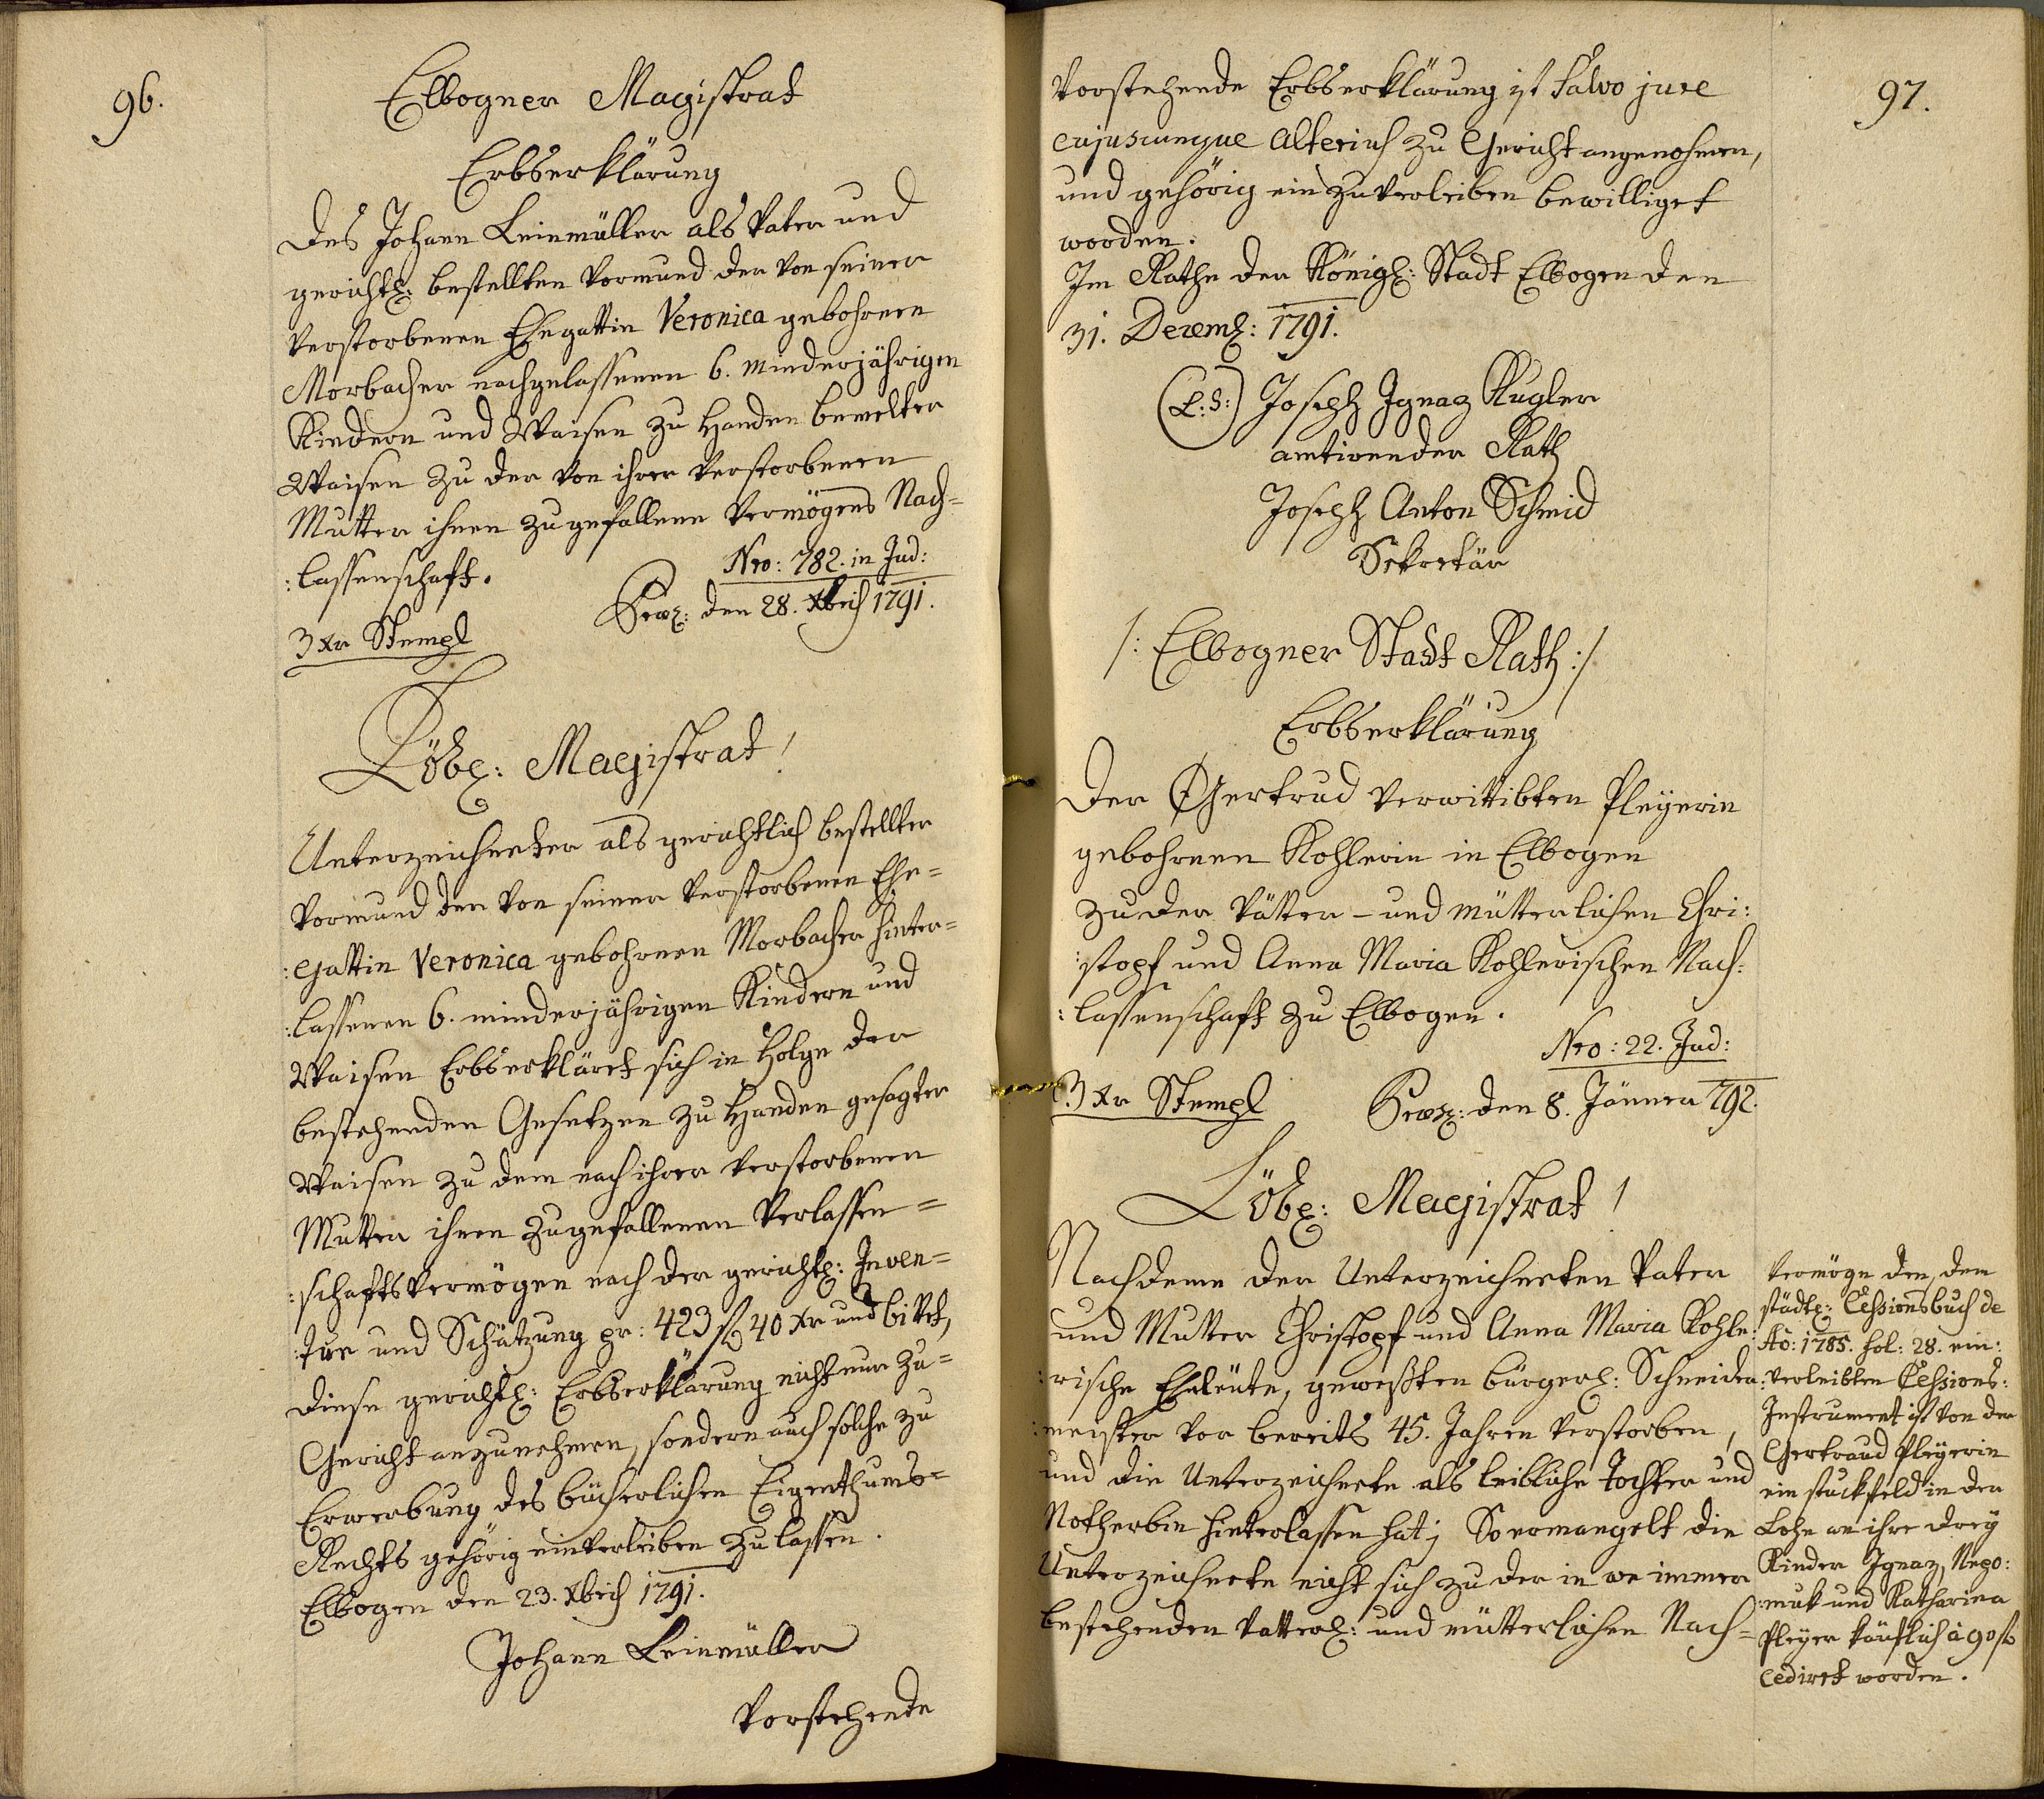 96.
Elbogner Magistrat
Erbserklärung
Des Johann Leinmüller als Vater und
gerichtl: bestellten Vormund der von seiner
verstorbenen Ehegattin Veronica gebohrnen
Morbacher nachgelassenen 6. minderjährigen
Kindern und Waisen zu Handen bemelter
Waisen zu der von ihrer verstorbenen
Mutter ihnen zugefallenen Vermögens Nach=
:lassenschaft.
Nro: 782. in Jud:
3 xr Stempl
Praes: den 28. Xbris 1791.
Löbl: Magistrat!
Unterzeichneter als gerichtlich bestellter
Vormund der von seiner verstorbenen Ehe=
:gattin Veronica gebohrnen Morbacher hinter=
:lassenen 6. minderjährigen Kindern und
Waisen Erbserkläret sich in Folge der
bestehenden Gesetzen zu Handen gesagter
Waisen zu dem nach ihrer verstorbenen
Mutter ihnen zugefallenen Verlassen=
:schaftsvermögen nach der gerichtl: Inven=
:tur und Schätzung pr: 423 f 40 xr und bittet,
diese gerichtl: Erbserklärung nicht nur zu=
Gericht anzunehmen, sondern auch solche zu
Erwerbung des bücherlichen Eigenthums=
Rechts gehörig einverleiben zu lassen.
Elbogen den 23. Xbris 1791.
Johann Leinmüller
Vorstehende
97.
Vorstehende Erbserklärung ist Salvo jure
cujuscunque alterius zu Gericht angenohmen,
und gehörig einzuverleiben bewilliget
worden.
Im Rathe der Königl: Stadt Elbogen den
31. Decemb: 1791.
(L:S:) Joseph Ignaz Kugler
amtirender Rath
Joseph Anton Schmid
Sekretär
/: Elbogner Stadt Rath :/
Erbserklärung
Der Gertrud verwittibten Pleyerin
gebohrnen Kohlerin in Elbogen
zu der Vätter- und mütterlichen Chri:
:stopf und Anna Maria Kohlerischen Nach:
:lassenschaft zu Elbogen.
Nro: 22. Jud:
3 xr Stempl
Praes: den 8. Jänner 792.
Löbl: Magistrat!
Nachdeme der Unterzeichneten Vater
und Mutter Christopf und Anna Maria Kohle:
:rische Eheleute, geweßten bürgerl: Schneider:
:meister vor bereits 45. Jahren verstorben,
und die Unterzeichnete als leibliche Tochter und
Notherbin hinterlassen hat; So ermangelt die
Unterzeichnete nicht sich zu der in wo immer
bestehenden Vatterl: und mütterlichen Nach=
Vermöge den, dem
städtl: Cessionsbuch de
Ao: 1785. fol: 28. ein:
:verleibten Cessions:
Instrument ist von der
Gertraud Pleyerin
ein stuckfeld in der
Lohe an ihre drey
Kinder Ignaz, Nepo:
:muk und Katharina
Pleyer käuflich à 90 f
cedirt worden.